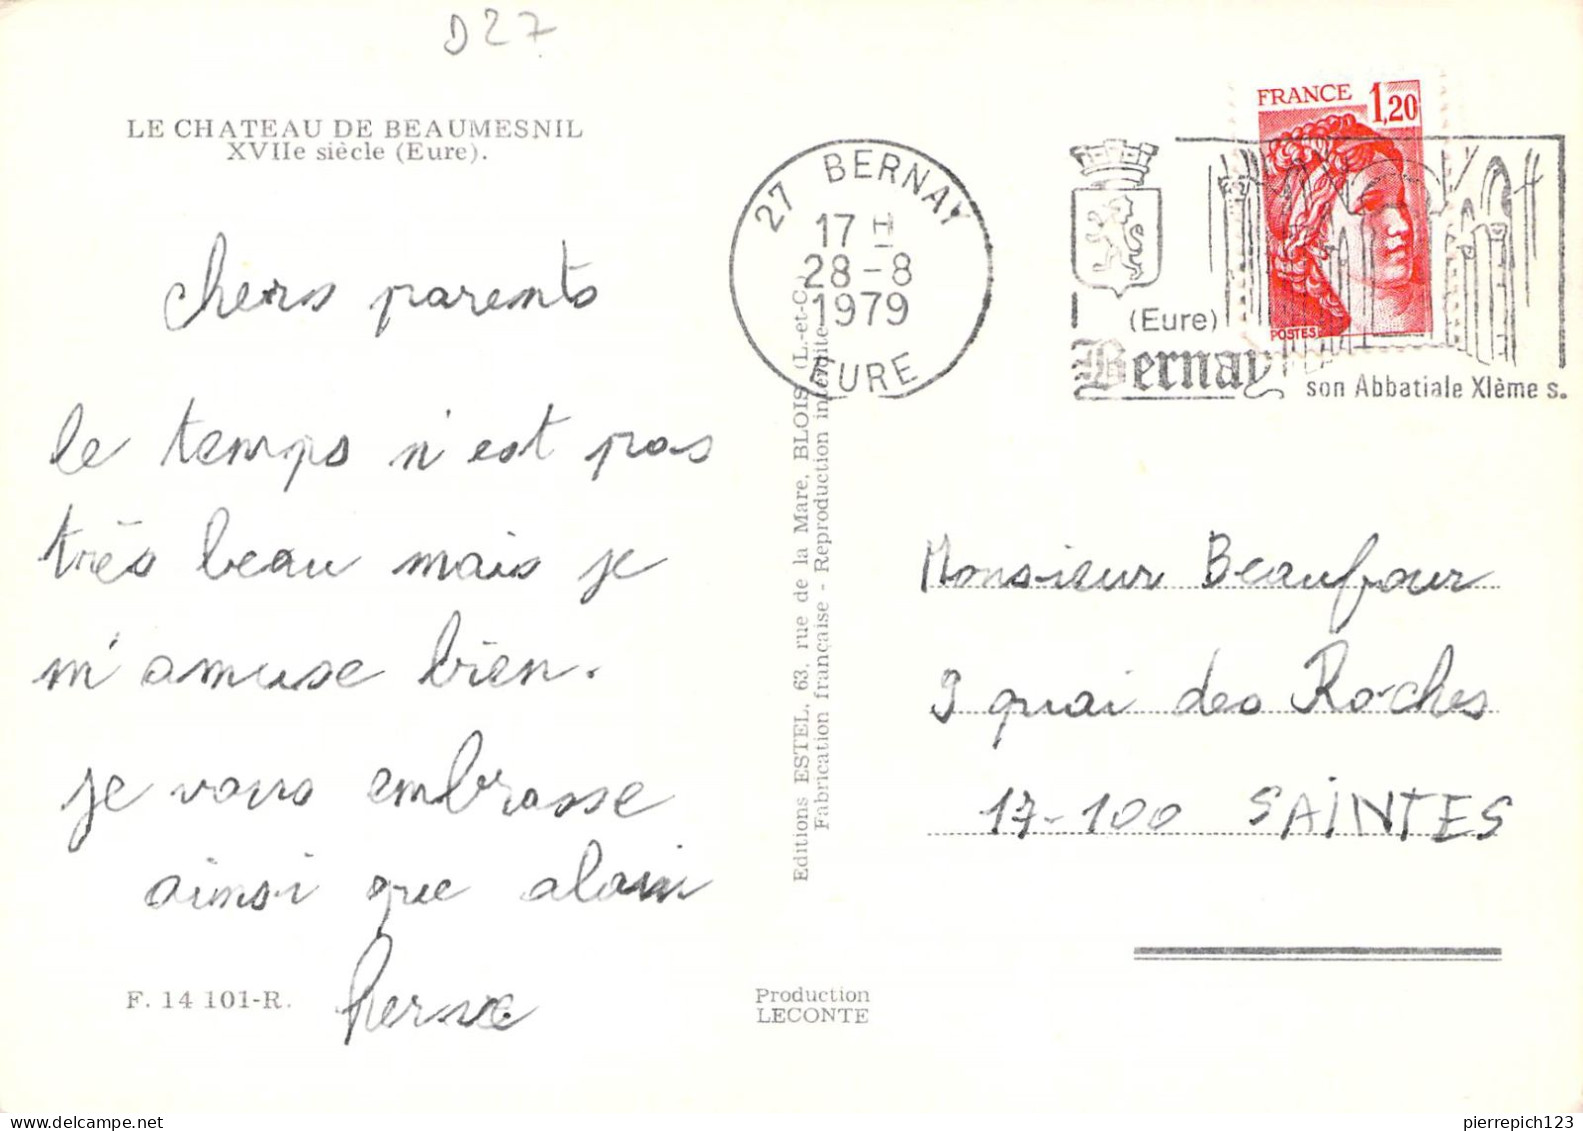 D 27
LE CHATEAU DE BEAUMESNIL
XVIIe siècle (Eure).
chers parents
le temps n'est pas
très beau mais je
m'amuse bien.
je vous embrasse
ainsi que alain
herve
F. 14 101-R.
Editions ESTEL, 63, rue de la Mare, BLOIS (L.-et-C.)
Fabrication française - Reproduction interdite
Production
LECONTE
27 BERNAY
17 H
28-8
1979
EURE
FRANCE 1,20
POSTES
(Eure)
Bernay
son Abbatiale XIème s.
Monsieur Beaufour
9 quai des Roches
17-100 SAINTES
pierrepich123